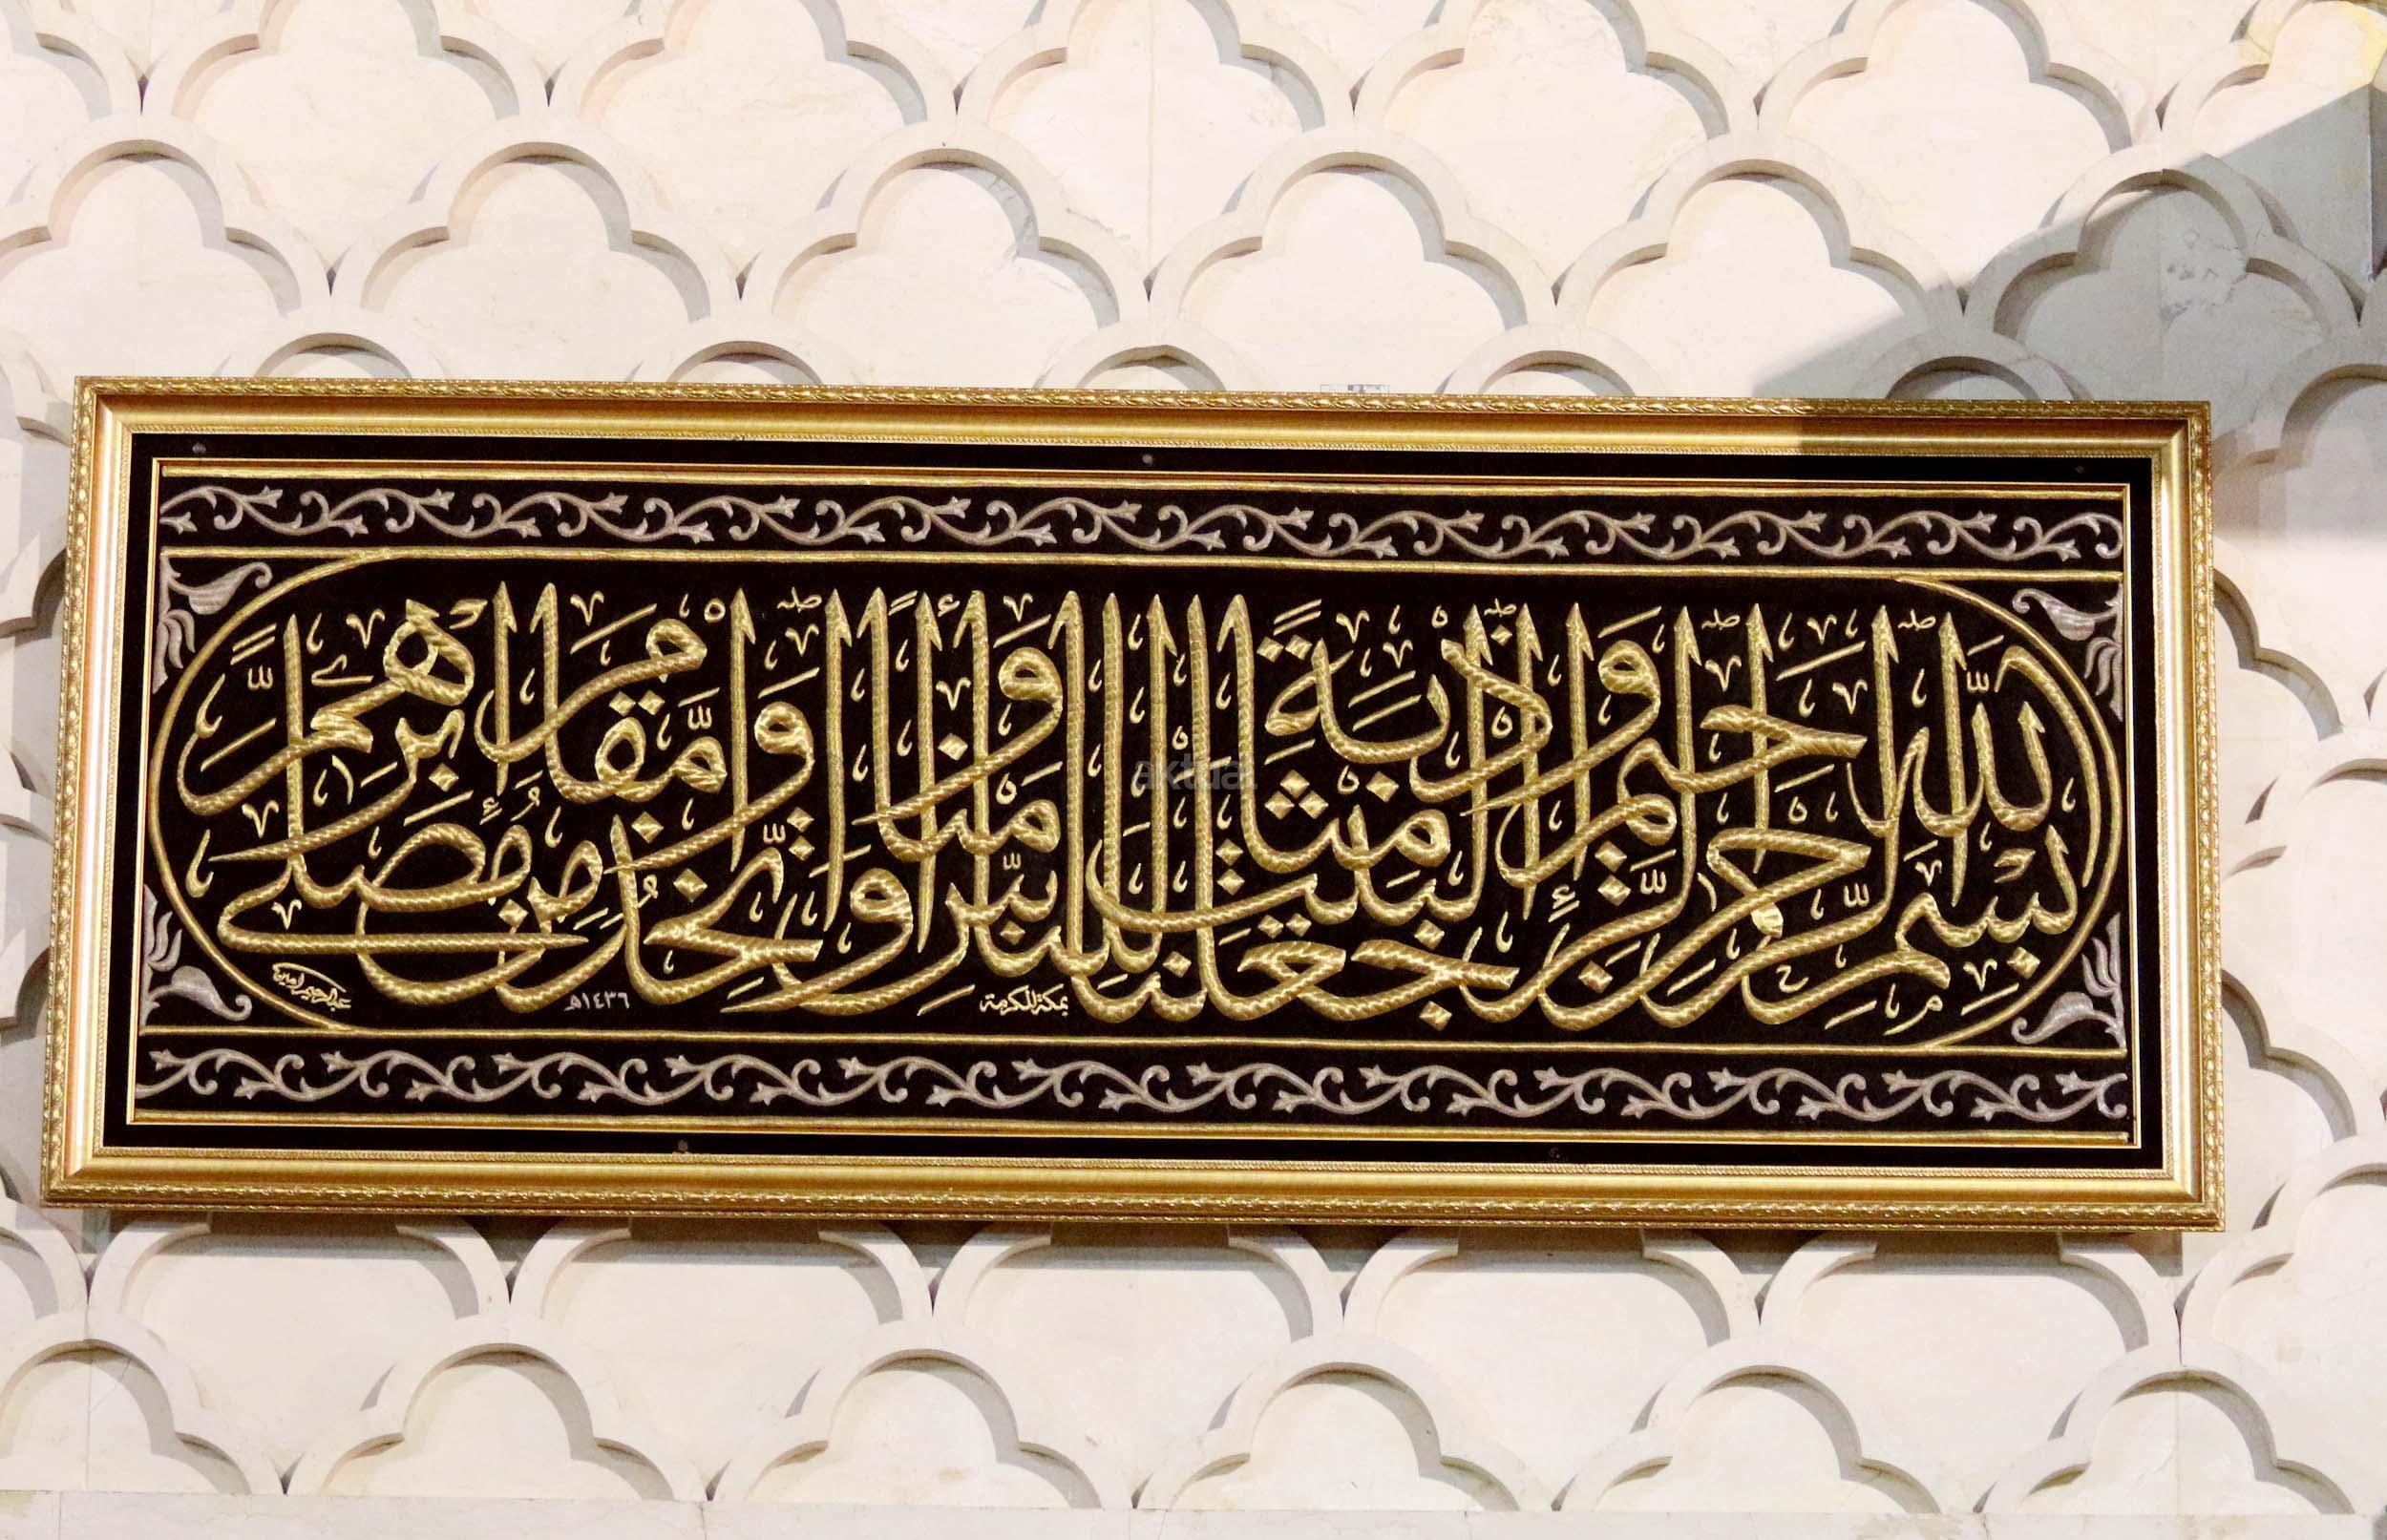 بِسْمِ ٱللَّهِ ٱلرَّحْمَٰنِ ٱلرَّحِيمِ وَإِذْ جَعَلْنَا ٱلْبَيْتَ مَثَابَةً لِّلنَّاسِ وَأَمْنًا وَٱتَّخِذُوا۟ مِن مَّقَامِ إِبْرَٰهِـۧمَ مُصَلًّى
بمكة المكرمة
١٤٣٦هـ
aktual